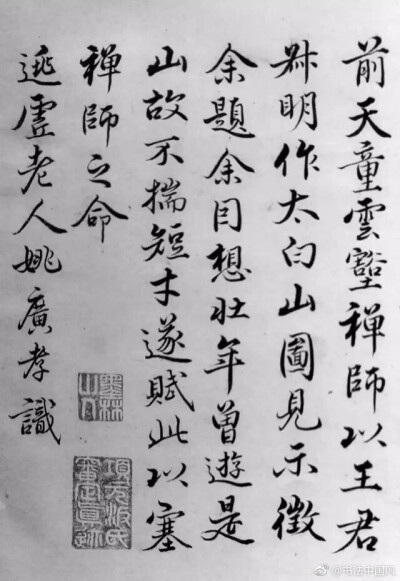 前天童雲壑禪師以王君
叔明作太白山圖見示徵
余題余因想壯年曾遊是
山故不揣短才遂賦此以塞
禪師之命
逃虛老人姚廣孝識
墨林
山人
項元汴氏
審定真跡
@书法中国网